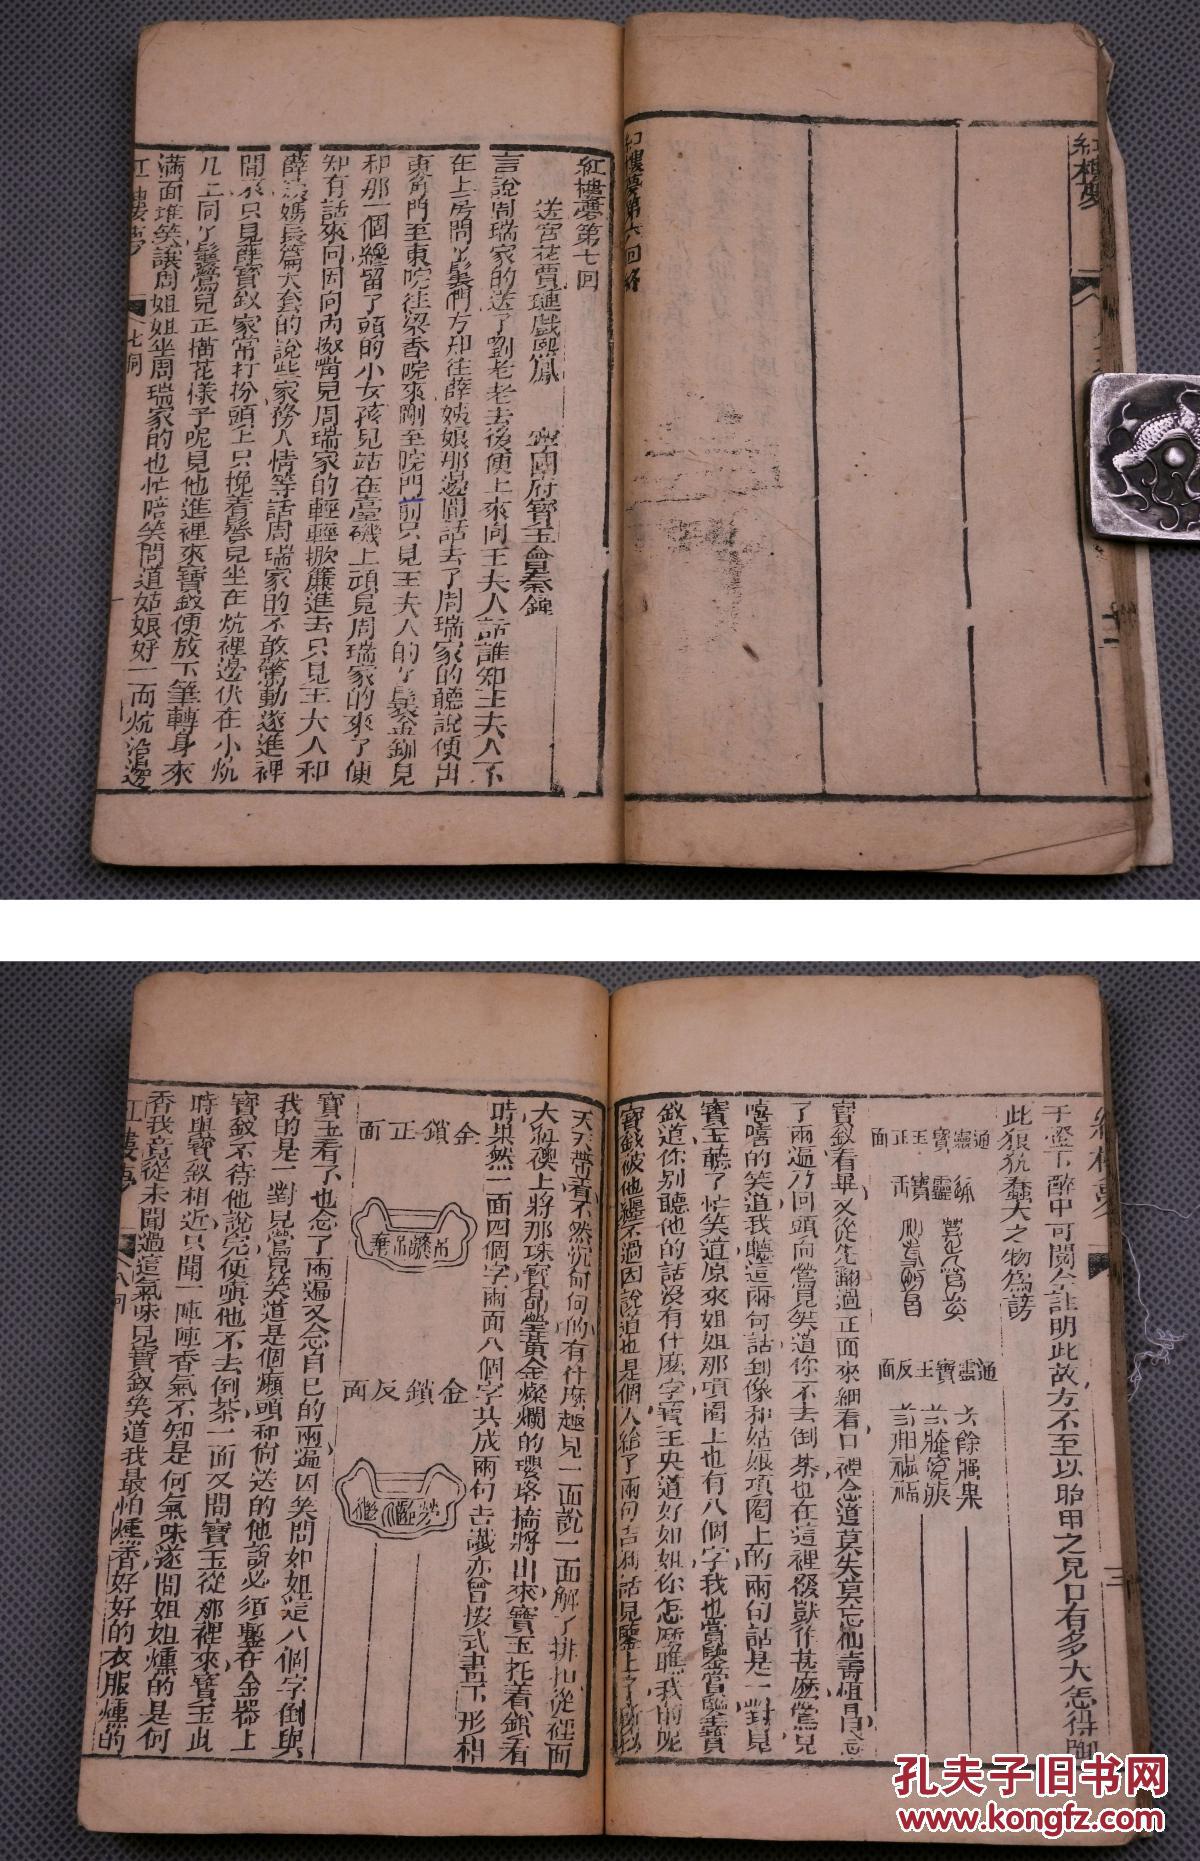 紅樓夢
紅樓夢第六回終
紅樓夢第七回
送宮花賈璉戲熙鳳　寧國府寶玉會秦鐘
言說周瑞家的送了劉老老去後便上來向王夫人話誰知王夫人不
在上房問丫鬟們方知往薛姨娘那邊閒話去了周瑞家的聽說便出
東角門至東院往梨香院來剛至院門前只見王夫人的丫鬟金釧兒
和那一個纔留了頭的小女孩兒站在臺磯上頑見周瑞家的來了便
知有話來回因向內努嘴兒周瑞家的輕輕掀簾進去只見王夫人和
薛姨媽長篇大套的說些家務人情等話周瑞家的不敢驚動遂進裡
間來只見薛寶釵家常打扮頭上只挽着鬢兒坐在炕裡邊伏在小炕
几上同丫鬟鶯兒正描花樣子呢見他進裡來寶釵便放下筆轉身來
滿面堆笑讓周姐姐坐周瑞家的也忙陪笑問道姑娘好一面炕沿邊
紅樓夢
七回
紅樓夢
三
于燈下醉中可閱今註明此故方不至以胎中之兒口有多大怎得啣
此狼犺蠢大之物為謗
通靈寶玉正面
通靈寶玉反面
寶釵看畢又從先翻過正面來細看口裡念道莫失莫忘仙壽恒昌念
了兩遍乃回頭向鶯兒笑道你不去倒茶也在這裡發獃作甚麽鶯兒
嘻嘻的笑道我聽這兩句話到像和姑娘項圈上的兩句話是一對兒
寶玉聽了忙笑道原來姐姐那項圈上也有八個字我也賞鑒賞鑒寶
釵道你別聽他的話沒有什麽字寶玉央道好姐姐你怎麽瞧我的呢
寶釵被他纏不過因說道也是個人給了兩句吉利話兒鏨上了所以
天天帶着不然沉甸甸的有什麽趣兒一面說一面解了排扣從裡面
大紅襖上將那珠寶晶瑩黃金燦爛的瓔珞摘將出來寶玉托着鎖看
時果然一面四個字兩面八個字共成兩句吉讖亦曾按式畫下形相
金鎖正面
金鎖反面
寶玉看了也念了兩遍又念自己的兩遍因笑問姐姐這八個字倒與
我的是一對兒鶯兒笑道是個癩頭和尚送的他說必須鏨在金器上
寶釵不待他說完便嗔他不去倒茶一面又問寶玉從那裡來寶玉此
時與寶釵相近只聞一陣陣香氣不知是何氣味遂問姐姐燻的是何
香我竟從未聞過這氣味兒寶釵笑道我最怕燻香好好的衣服燻的
紅樓夢
八回
孔夫子旧书网
www.kongfz.com